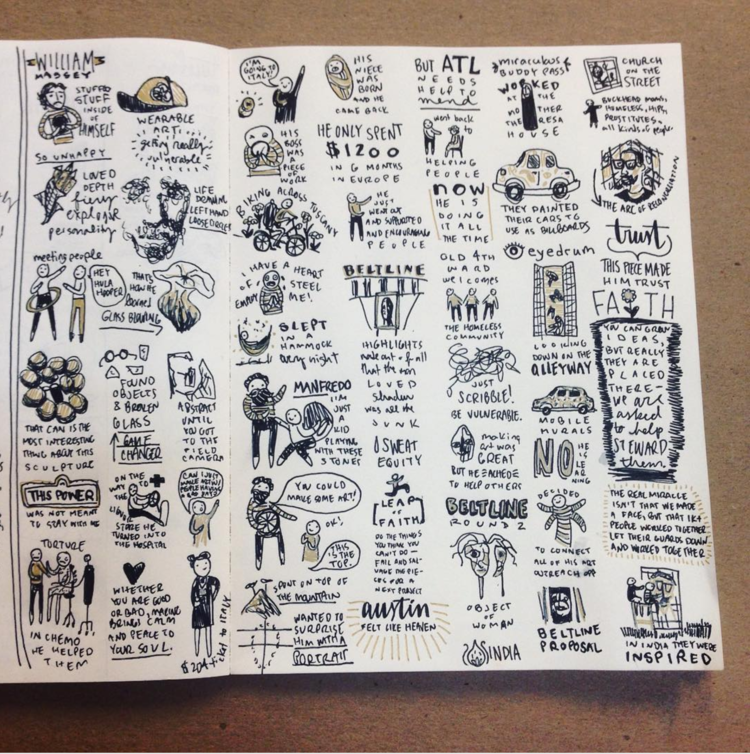 WILLIAM
MASSEY
STUFFED
STUFF
INSIDE
OF
HIMSELF
SO UNHAPPY
WEARABLE
ART:
getting really
vulnerable
LOVED
DEPTH
fiery
explosive
personality
LIFE
DRAWING
LEFT HAND
meeting people
HEY
HULA
HOOPER
THAT'S
HOW HE
learned
GLASS BLOWING
THAT CAN IS THE
MOST INTERESTING
THING ABOUT THIS
SCULPTURE
FOUND
OBJECTS
& BROKEN
GLASS
GAME
CHANGER
ABSTRACT
UNTIL
YOU GOT
TO THE
FIELD
CAMERA
THIS POWER
WAS NOT MEANT
TO STAY WITH ME
ON THE
WAY TO
THE
STORE HE
TURNED INTO
THE HOSPITAL
CAN I JUST
MAKE ART W/
PEOPLE HAVING
A BAD DAY?
TORTURE
IN CHEMO
HE HELPED
THEM
WHETHER
YOU ARE GOOD
OR BAD, MAKING
BRINGS CALM
AND PEACE TO
YOUR SOUL.
TO ITALY
I'M
GOING TO
ITALY!
HIS
BOSS
WAS A
PIECE OF
WORK
BIKING ACROSS TUSCANY
I HAVE A HEART
OF STEEL
EMPTY ME!
SLEPT
IN
HAMMOCK
every night
MANFREDO
I'M
JUST
A
KID
PLAYING
WITH THESE
STONES
YOU COULD
MAKE SOME ART!
OK!
THIS IS
THE TOP.
SPENT ON TOP OF
THE MOUNTAIN
WANTED TO
SURPRISE
HIM WITH A
PORTRAIT
HIS
NIECE
WAS
BORN
AND HE
CAME BACK
HE ONLY SPENT
$1200
IN 6 MONTHS
IN EUROPE
HE
JUST
WENT OUT
AND SUPPORTED
AND ENCOURAGING
PEOPLE
BELTLINE
HIGHLIGHTS
made out of all
that the son
LOVED
was all the
JUNK
SWEAT
EQUITY
LEAP
OF
FAITH
DO THE THINGS
YOU THINK YOU
CAN'T DO —
FAIL AND SAL-
VAGE THE PIE-
CES FOR A
NEXT PROJECT
austin
FELT LIKE HEAVEN
BUT ATL
NEEDS
HELP TO
mend
went back
to
HELPING
PEOPLE
NOW
HE IS
DOING
IT ALL
THE TIME
OLD 4TH
WARD
welcomes
THE HOMELESS
COMMUNITY
JUST
SCRIBBLE!
BE VULNERABLE.
making
art was
GREAT
BUT HE ACHED
TO HELP OTHERS
BELTLINE
ROUND 2
OBJECT
OF
WOMAN
INDIA
miraculous
BUDDY PASS
WORKED
AT THE
MOTHER
TERESA
HOUSE
THEY PAINTED
THEIR CARS TO
USE AS BILLBOARDS
eyedrum
LOOKING
DOWN ON THE
ALLEYWAY
MOBILE
MURALS
NO
HE
IS
LEARNING
DECIDED
TO CONNECT
ALL OF HIS ART
OUTREACH
BELTLINE
PROPOSAL
CHURCH
ON THE
STREET
BUCKHEAD moms,
HOMELESS, HIPS,
PROSTITUTES,
all kinds of people
THE ARC OF RECONCILIATION
trust
THIS PIECE MADE
HIM TRUST
FAITH
YOU CAN GROW
IDEAS,
BUT REALLY
THEY ARE
PLACED
THERE—
we are
asked
to help
STEWARD
them.
THE REAL MIRACLE
ISN'T THAT WE MADE
A FACE, BUT THAT 1K+
PEOPLE WORKED TOGETHER
LET THEIR GUARDS DOWN
AND WORKED TOGETHER
IN INDIA THEY WERE
INSPIRED